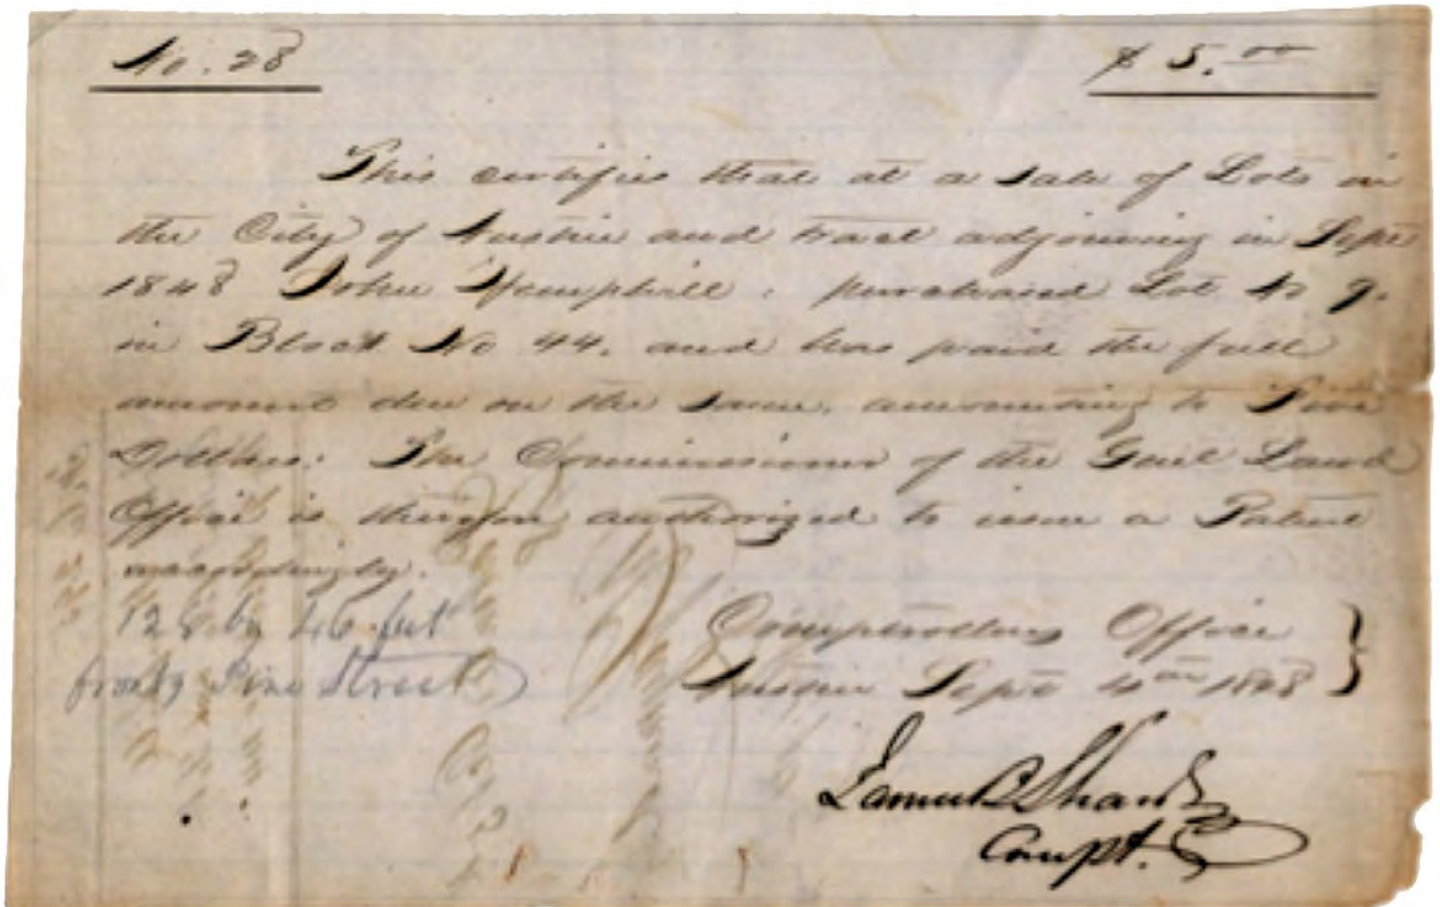 No. 28
$ 5.00
This certifies that at a sale of Lots in
the City of Austin and tract adjoining in Sept
1848 John Hemphill, purchased Lot No 9.
in Block No 44. and has paid the full
amount due on the same, amounting to Five
Dollars. The Commissioner of the Genl Land
Office is therefore authorized to issue a Patent
accordingly.
128 by 46 feet
fronts Pine Street
Comptrollers Office
Austin Sept 1848
James B Shaw
Compt.